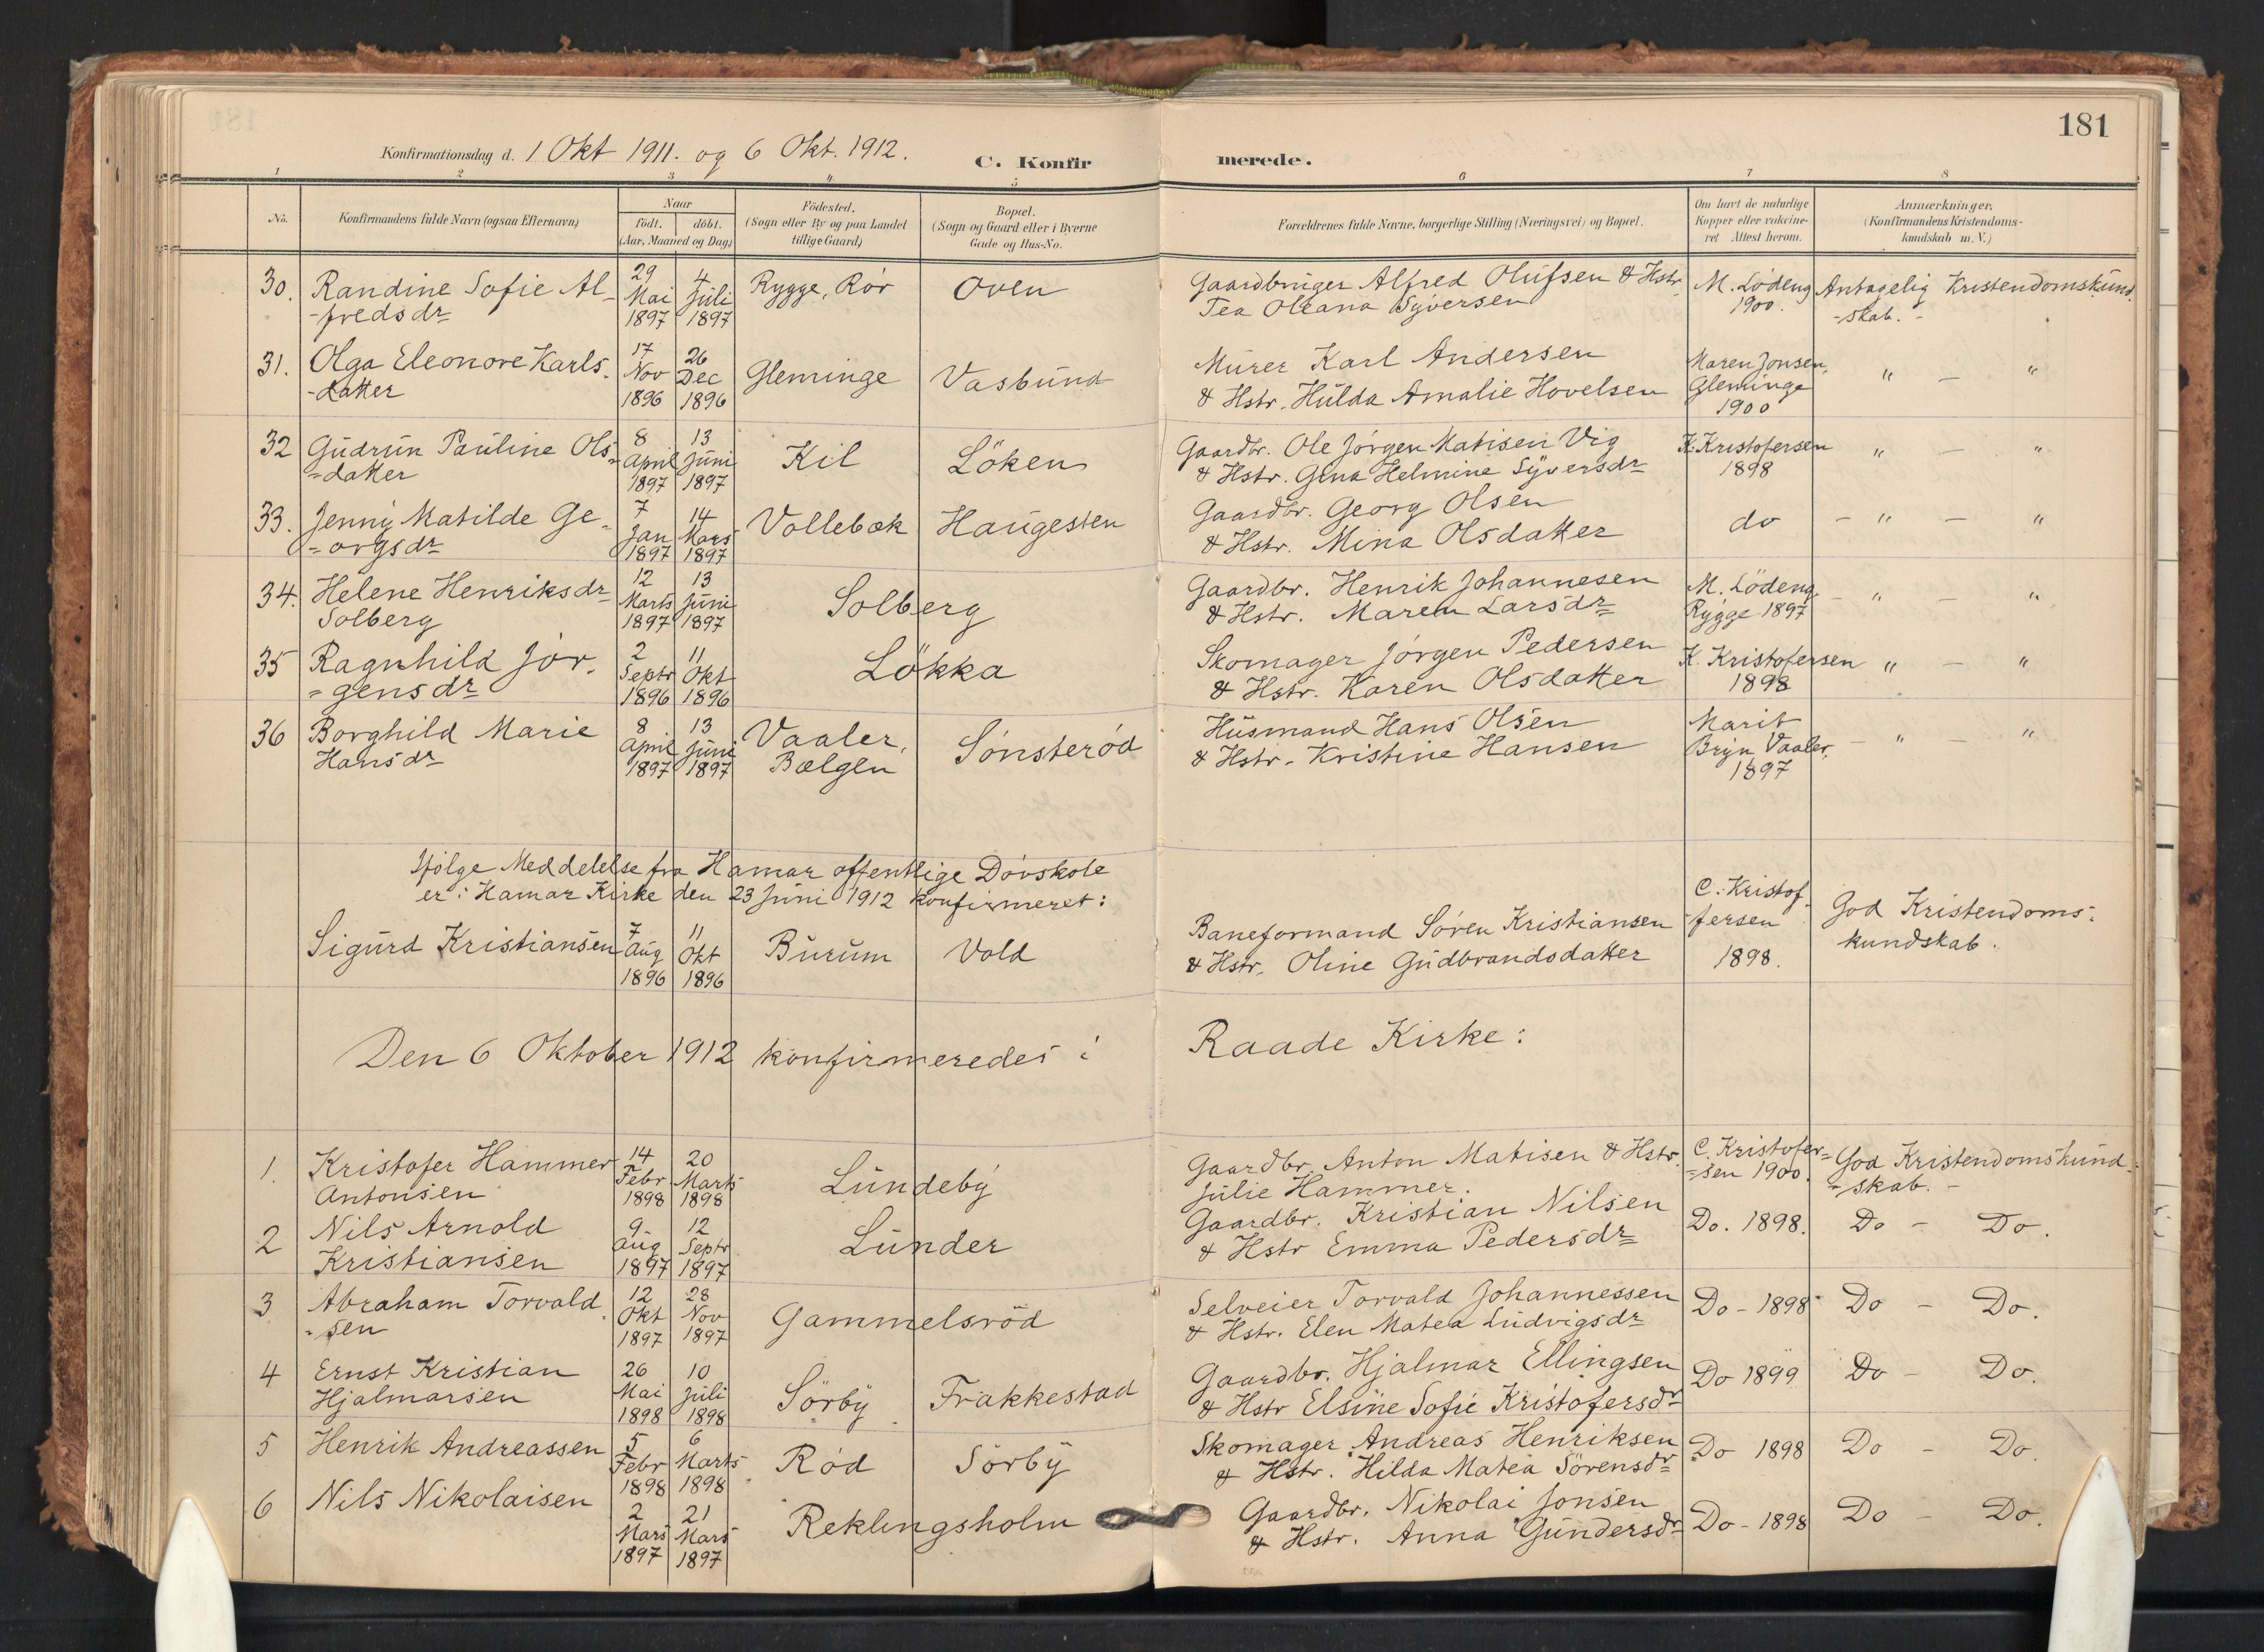 181
Konfirmationsdag d. 1 Okt 1911. og 6 Okt. 1912.
C. Konfirmerede.
1 2 3 4 5 6 7 8
No. Konfirmandens fulde Navn (ogsaa Efternavn) Naar født. døbt. (Aar, Maaned og Dag) Fødested. (Sogn eller By og paa Landet tillige Gaard) Bopæl. (Sogn og Gaard eller i Byerne Gade og Hus-No. Forældrenes fulde Navne, borgerlige Stilling (Næringsvei) og Bopæl. Om havt de naturlige Kopper eller vakcineret Attest herom. Anmærkninger. (Konfirmandens Kristendomskundskab m.V.)
30. Randine Sofie Al- 29 Mai 1897 4 Juli 1897 Rygge, Rör Oven Gaardbruger Alfred Olufsen & Hstr. M. Lödeng Antagelig Kristendomskund
-fredsdr Tea Oleana Syversen 1900. -skab. -
31. Olga Eleonore Karls- 17 Nov 1896 26 Dec 1896 Gleminge Vasbund Murer Karl Andersen Maren Jonsen, " — "
-datter & Hstr. Hulda Amalie Hovelsen Gleminge 1900
32 Gudrun Pauline Ols 8 April 1897 13 Juni 1897 Kil Löken Gaardbr. Ole Jörgen Matisen Vig K. Kristofersen " — "
=datter & Hstr. Gina Helmine Syversdr 1898
33. Jenny Matilde Ge- 7 Jan 1897 14 Mars 1897 Vollebæk Haugesten Gaardbr. Georg Olsen do - " — "
=orgsdr & Hstr. Mina Olsdatter
34. Helene Henriksdr 12 Marts 1897 13 Juni 1897 Solberg Gaardbr. Henrik Johannesen M. Lödeng - " — "
Solberg & Hstr. Maren Larsdr Rygge 1897
35 Ragnhild Jör- 2 Septr 1896 11 Okt 1896 Lökka Skomager Jörgen Pedersen K. Kristofersen " — "
=gensdr & Hstr. Karen Olsdatter 1898
36 Borghild Marie 8 April 1897 13 Juni 1897 Vaaler, Bælgen Sönsteröd Husmand Hans Olsen Marit - " — "
Hansdr & Hstr. Kristine Hansen Bryn Vaaler, 1897
Ifölge Meddelelse fra Hamar offentlige Dövskole
er i Hamar Kirke den 23 Juni 1912 Konfirmeret:
Sigurd Kristiansen 7 Aug 1896 11 Okt 1896 Burum Vold Baneformand Sören Kristiansen C. Kristof- God Kristendoms-
& Hstr. Oline Gudbrandsdatter fersen 1898. kundskab.
Den 6 Oktober 1912 konfirmeredes i Raade Kirke:
1. Kristofer Hammer 14 Febr 1898 20 Marts 1898 Lundeby Gaardbr. Anton Matisen & Hstr. C. Kristofer= God Kristendomskund-
Antonsen Julie Hammer. =sen 1900. =skab. -
2 Nils Arnold 9 Aug 1897 12 Septr 1897 Lunder Gaardbr. Kristian Nilsen Do. 1898. Do - Do.
Kristiansen & Hstr Emma Pedersdr
3 Abraham Torvald 12 Okt 1897 28 Nov 1897 Gammelsröd Selveier Torvald Johannessen Do - 1898 Do - Do.
-sen & Hstr. Elen Matea Ludvigsdr
4 Ernst Kristian 26 Mai 1898 10 Juli 1898 Sörby Frakkestad Gaardbr. Hjalmar Ellingsen Do 1899 Do - Do.
Hjalmarsen & Hstr Elsine Sofie Kristofersdr
5 Henrik Andreassen 5 Febr 1898 6 Marts 1898 Röd Sörby Skomager Andreas Henriksen Do 1898 Do - Do.
& Hstr. Hilda Matea Sörensdr
6 Nils Nikolaisen 2 Mars 1897 21 Mars 1897 Reklingsholm Gaardbr. Nikolai Jonsen Do - 1898 Do - Do.
& Hstr. Anna Gundersdr